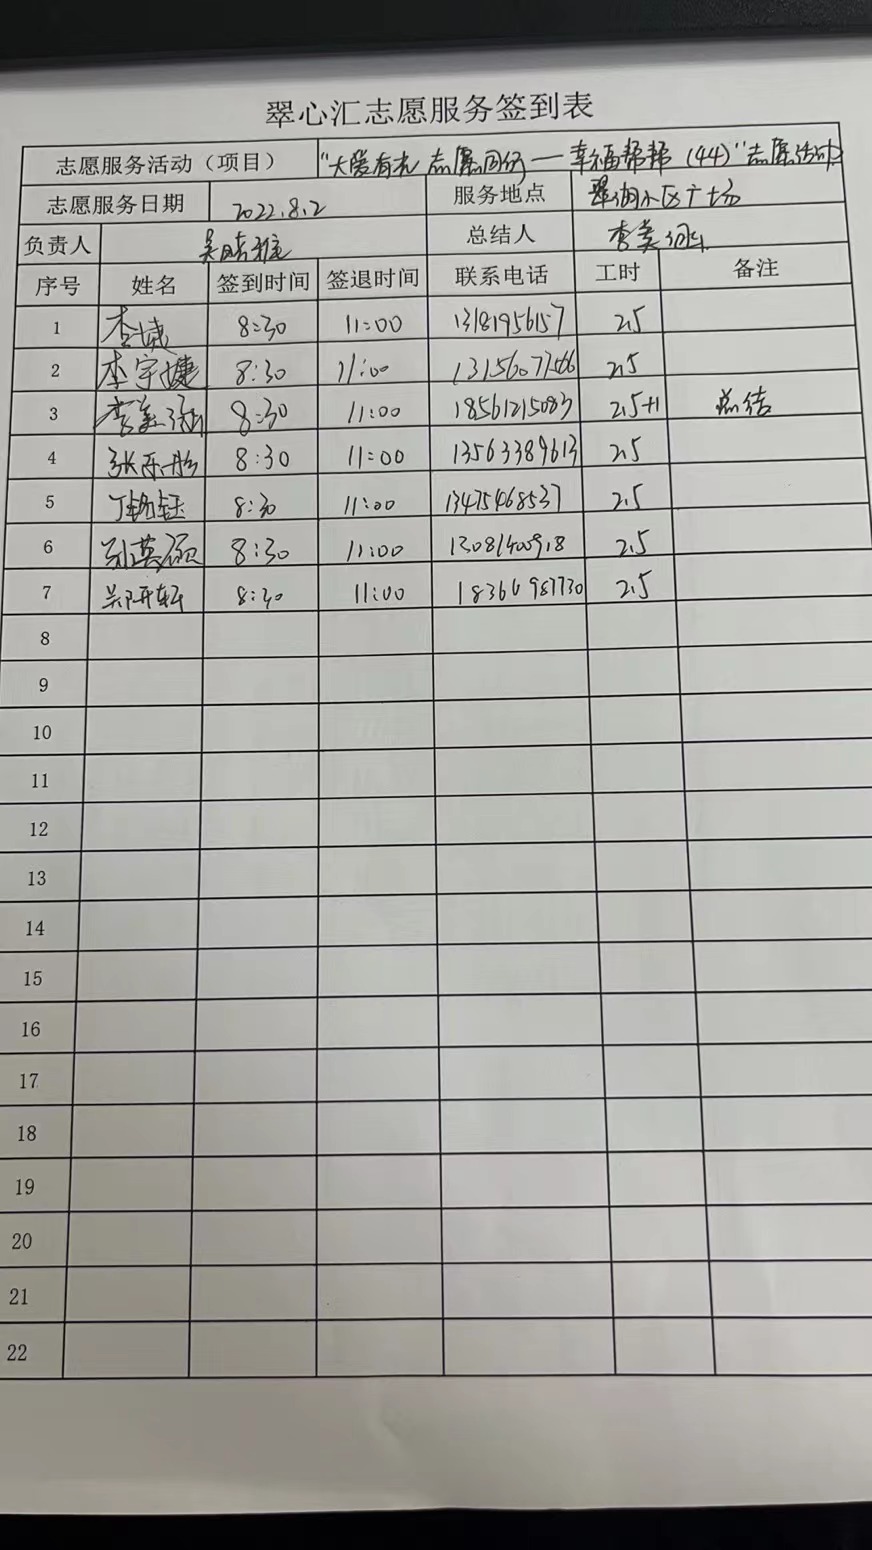 翠心汇志愿服务签到表
志愿服务活动（项目） "大爱有光 志愿同行—幸福帮帮（44）"志愿活动
志愿服务日期 2022.8.2 服务地点 翠湖小区广场
负责人 吴晴雅 总结人 李美
序号 姓名 签到时间 签退时间 联系电话 工时 备注
1 李 8:30 11:00 13181956157 2.5
2 李宇婕 8:30 11:00 13156077566 2.5
3 李美 8:30 11:00 18561215083 2.5+1 总结
4 张 8:30 11:00 13563389613 2.5
5 丁钰 8:30 11:00 13475468537 2.5
6 8:30 11:00 13081400918 2.5
7 吴 8:30 11:00 18366987730 2.5
8
9
10
11
12
13
14
15
16
17
18
19
20
21
22